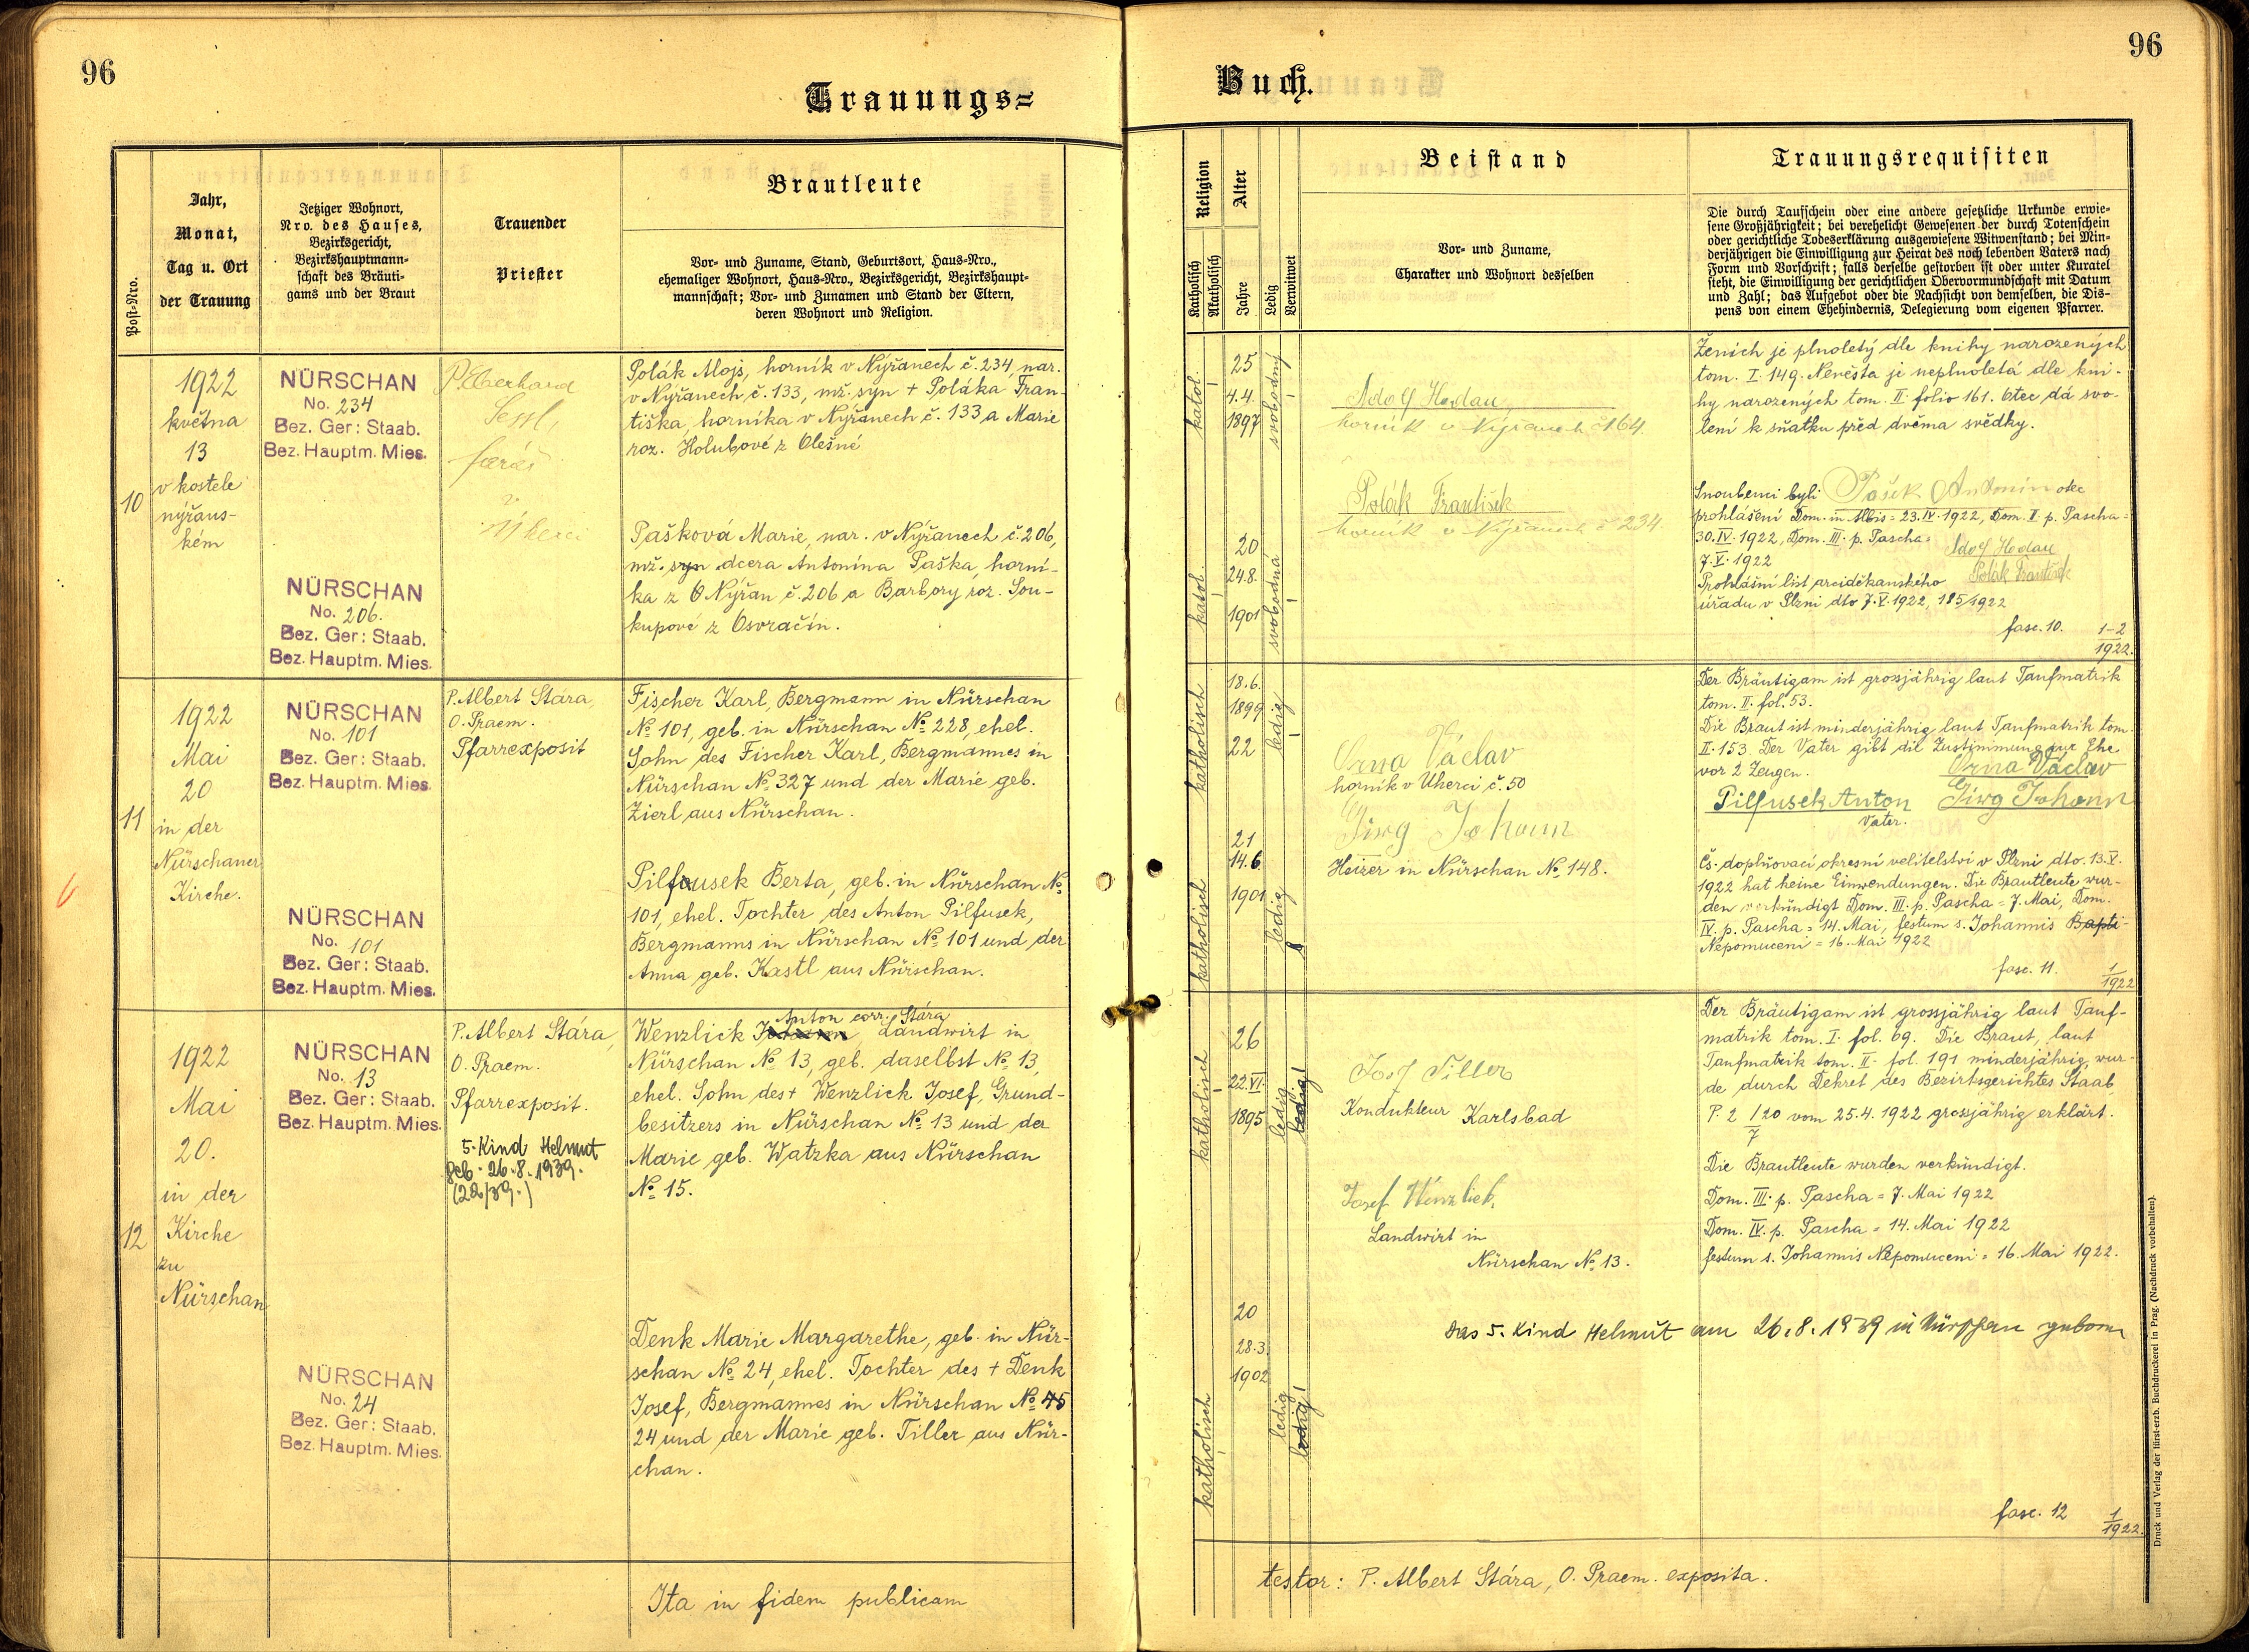 96
Trauungs=
Post-Nro.
Jahr,
Monat,
Tag u. Ort
der Trauung
Jetziger Wohnort,
Nro. des Hauses,
Bezirksgericht,
Bezirkshauptmann-
schaft des Bräuti-
gams und der Braut
Trauender
Priester
Brautleute
Vor- und Zuname, Stand, Geburtsort, Haus-Nro.,
ehemaliger Wohnort, Haus-Nro., Bezirksgericht, Bezirkshaupt-
mannschaft; Vor- und Zunamen und Stand der Eltern,
deren Wohnort und Religion.
10
1922
května
13
v kostele
nýřans-
kém
NÜRSCHAN
No. 234
Bez. Ger: Staab.
Bez. Hauptm. Mies.
P. Eberhard
Sessl,
farář
v
Úherci
Polák Alojs, horník v Nýřanech č. 234, nar.
v Nýřanech č. 133, mž. syn + Poláka Fran-
tiška, horníka v Nýřanech č. 133 a Marie
roz. Holubové z Olešné
NÜRSCHAN
No. 206.
Bez. Ger: Staab.
Bez. Hauptm. Mies.
Pašková Marie, nar. v Nýřanech č. 206,
mž. syn dcera Antonína Paška, horní-
ka z O Nýřan č. 206 a Barbory roz. Sou-
kupové z Osvračín.
11
1922
Mai
20
in der
Nürschaner
Kirche.
NÜRSCHAN
No. 101
Bez. Ger: Staab.
Bez. Hauptm. Mies.
P. Albert Stára,
O. Praem.
Pfarrexposit
Fischer Karl, Bergmann in Nürschan
No 101, geb. in Nürschan No 228, ehel.
Sohn des Fischer Karl, Bergmannes in
Nürschan No 327 und der Marie geb.
Zierl aus Nürschan.
NÜRSCHAN
No. 101
Bez. Ger: Staab.
Bez. Hauptm. Mies.
Pilfousek Berta, geb. in Nürschan No
101, ehel. Tochter des Anton Pilfusek,
Bergmanns in Nürschan No 101 und der
Anna geb. Kastl aus Nürschan.
12
1922
Mai
20.
in der
Kirche
zu
Nürschan
NÜRSCHAN
No. 13
Bez. Ger: Staab.
Bez. Hauptm. Mies.
P. Albert Stára,
O. Praem.
Pfarrexposit.
5. Kind Helmut
geb. 26.8.1939.
(22/39.)
Anton corr. Stára
Wenzlick Johann, Landwirt in
Nürschan No 13, geb. daselbst No 13,
ehel. Sohn des + Wenzlick Josef, Grund-
besitzers in Nürschan No 13 und der
Marie geb. Watzka aus Nürschan
No 15.
NÜRSCHAN
No. 24
Bez. Ger: Staab.
Bez. Hauptm. Mies.
Denk Marie Margarethe, geb. in Nür-
schan No 24, ehel. Tochter des + Denk
Josef, Bergmannes in Nürschan No 45
24 und der Marie geb. Tiller aus Nür-
chan.
Ita in fidem publicam
96
Buch.
Religion
Katholisch
Akatholisch
Alter
Jahre
Ledig
Verwitwet
Beistand
Vor- und Zuname,
Charakter und Wohnort desselben
Trauungsrequisiten
Die durch Taufschein oder eine andere gesetzliche Urkunde erwie-
sene Großjährigkeit; bei verehelicht Gewesenen der durch Totenschein
oder gerichtliche Todeserklärung ausgewiesene Witwenstand; bei Min-
derjährigen die Einwilligung zur Heirat des noch lebenden Vaters nach
Form und Vorschrift; falls derselbe gestorben ist oder unter Kuratel
steht, die Einwilligung der gerichtlichen Obervormundschaft mit Datum
und Zahl; das Aufgebot oder die Nachsicht von demselben, die Dis-
pens von einem Ehehindernis, Delegierung vom eigenen Pfarrer.
katol.
25
4.4.
1897
svobodný
Adolf Hodau
horník v Nýřanech č 164.
Polák František
horník v Nýřanech č 234.
katol.
20
24.8.
1901
svobodná
Ženich je plnoletý dle knihy narozených
tom. I. 149. Nevěsta je neplnoletá dle kni-
hy narozených tom. II. folio 161. Otec dá svo-
lení k sňatku před dvěma svědky.
Snoubenci byli Pašek Antonín otec
prohlášeni Dom. in Albis = 23.IV.1922, Dom. II. p. Pascha =
30.IV.1922, Dom. III. p. Pascha =
7.V.1922
Adolf Hodau
Polák František
Prohlášní list arciděkanského
úřadu v Plzni dto 7.V.1922, 185/1922
fasc. 10.
1-2
1922.
katholisch
18.6.
1899
22
ledig
Orna Václav
horník v Úherci č. 50
Girg Johann
Heizer in Nürschan No 148.
katholisch
21
14.6.
1901
ledig
Der Bräutigam ist grossjährig laut Taufmatrik
tom. II. fol. 53.
Die Braut ist minderjährig laut Taufmatrik tom.
II. 153. Der Vater gibt die Zustimmung zur Ehe
vor 2 Zeugen.
Orna Václav
Pilfusek Anton Girg Johann
Vater.
Čs. doplňovací okresní velitelství v Plzni dto. 13.V.
1922 hat keine Einwendungen. Die Brautleute wur-
den verkündigt Dom. III. p. Pascha = 7. Mai, Dom.
IV. p. Pascha = 14. Mai, festum s. Johannis Bapti-
Nepomuceni = 16. Mai 1922
fasc. 11.
1
1922
katholisch
26
22.VI.
1895
ledig
ledig!
Josef Tiller
Kondukteur Karlsbad
Josef Wenzlick,
Landwirt in
Nürschan No 13.
katholisch
20
28.3.
1902
ledig
ledig!
Der Bräutigam ist grossjährig laut Tauf-
matrik tom. I. fol. 69. Die Braut, laut
Taufmatrik tom. II. fol. 191 minderjährig, wur-
de durch Dekret des Bezirksgerichtes Staab
P. 2 /20 vom 25.4.1922 grossjährig erklärt.
7
Die Brautleute wurden verkündigt.
Dom. III. p. Pascha = 7. Mai 1922
Dom. IV. p. Pascha = 14. Mai 1922
festum s. Johannis Nepomuceni = 16. Mai 1922.
Das 5. Kind Helmut am 26.8.1939 in Nürschan geboren
fasc. 12
1
1922.
testor: P. Albert Stára, O. Praem. exposita.
Druck und Verlag der fürst-erzb. Buchdruckerei in Prag. (Nachdruck vorbehalten).